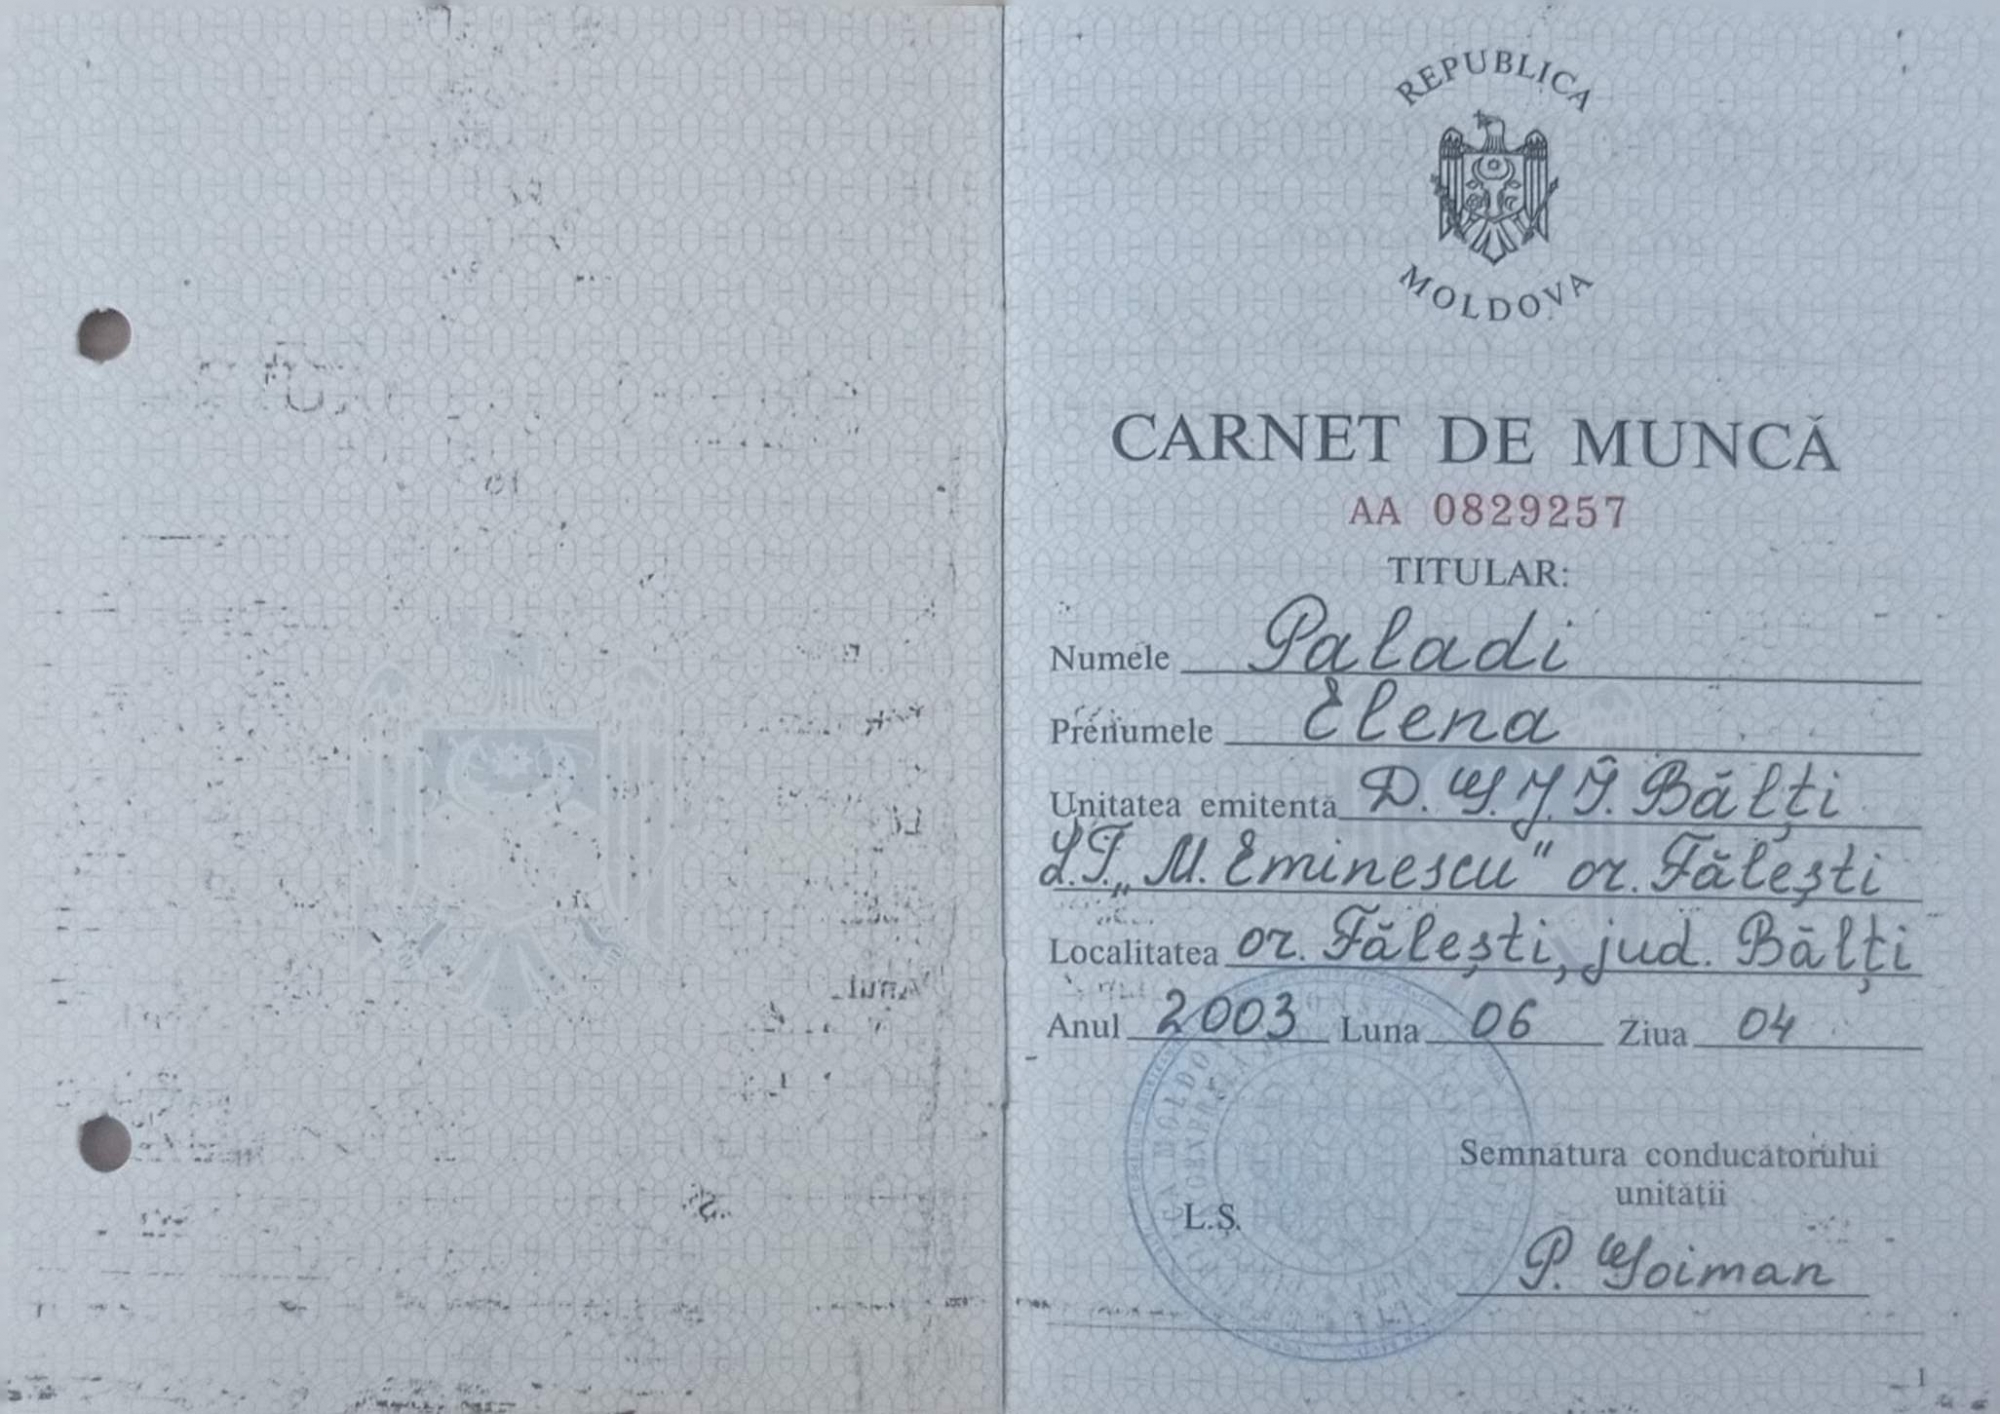 REPUBLICA
MOLDOVA
CARNET DE MUNCĂ
AA 0829257
TITULAR:
Numele Paladi
Prenumele Elena
Unitatea emitentă D. Î. Bălți
L.T. „M. Eminescu" or. Fălești
Localitatea or. Fălești, jud. Bălți
Anul 2003 Luna 06 Ziua 04
Semnătura conducătorului
unității
L.Ș.
P. Șoiman
1